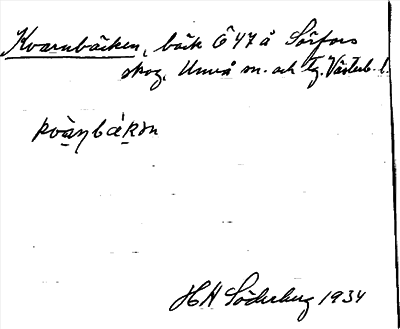 Kvarnbäcken, bäck Ö47 å Sörfors
skog, Umeå sn. och tg. Västerb. l.
kvàɳbákɷn
HH Söderberg 1934